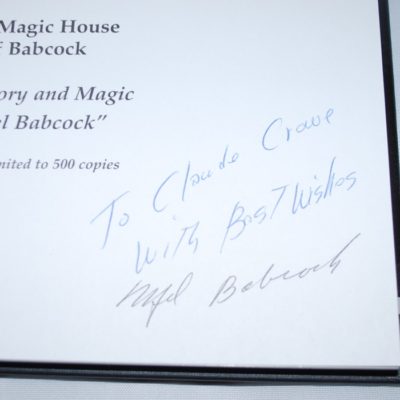 Magic House
f Babcock
ory and Magic
el Babcock"
nited to 500 copies
To Claude Crowe
With Best Wishes
Mel Babcock